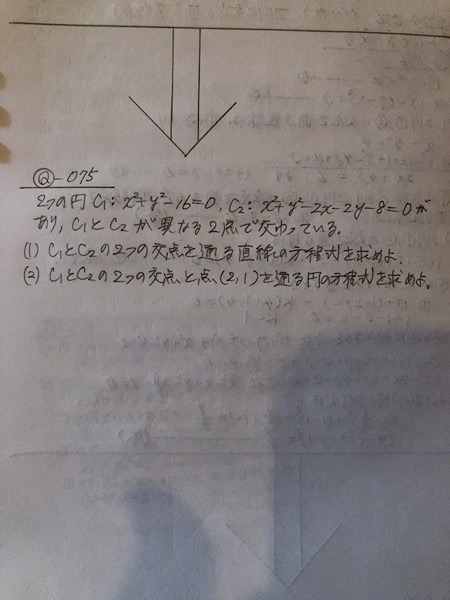 Q-075
2つの円 C₁: x²+y²-16=0, C₂: x²+y²-2x-2y-8=0が
あり, C₁とC₂が異なる2点で交わっている.
(1) C₁とC₂の2つの交点を通る直線の方程式を求めよ.
(2) C₁とC₂の2つの交点と点(2,1)を通る円の方程式を求めよ.